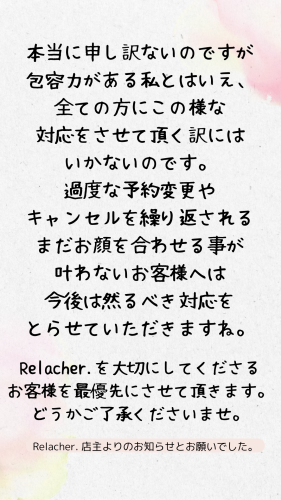 本当に申し訳ないのですが
包容力がある私とはいえ、
全ての方にこの様な
対応をさせて頂く訳には
いかないのです。
過度な予約変更や
キャンセルを繰り返される
まだお顔を合わせる事が
叶わないお客様へは
今後は然るべき対応を
とらせていただきますね。
Relacher.を大切にしてくださる
お客様を最優先にさせて頂きます。
どうかご了承くださいませ。
Relacher. 店主よりのお知らせとお願いでした。